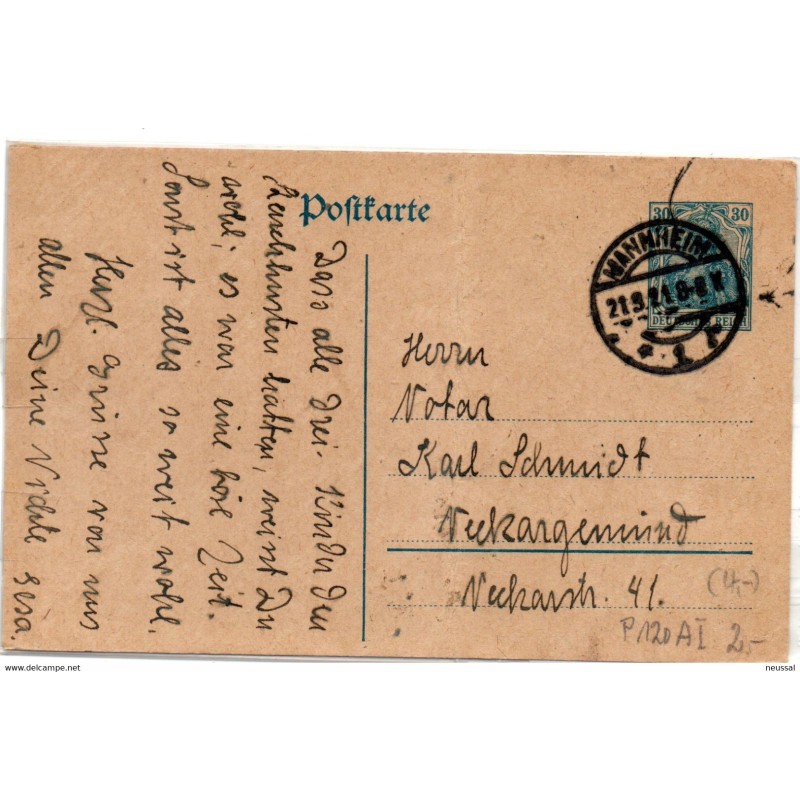 Postkarte
30 30
DEUTSCHES REICH
MANNHEIM
21.9.21.8-9 V
* 1
Herrn
Notar
Karl Schmidt
Neckargemünd
Neckarstr. 41.
(4,-)
P120AI 2,-
Dass alle drei Kinder den
Keuchhusten hatten, weisst Du
wohl; es war eine böse Zeit.
Sonst ist alles so weit wohl.
Herzl. Grüsse von uns
allen Deine Nichte
www.delcampe.net
neussal